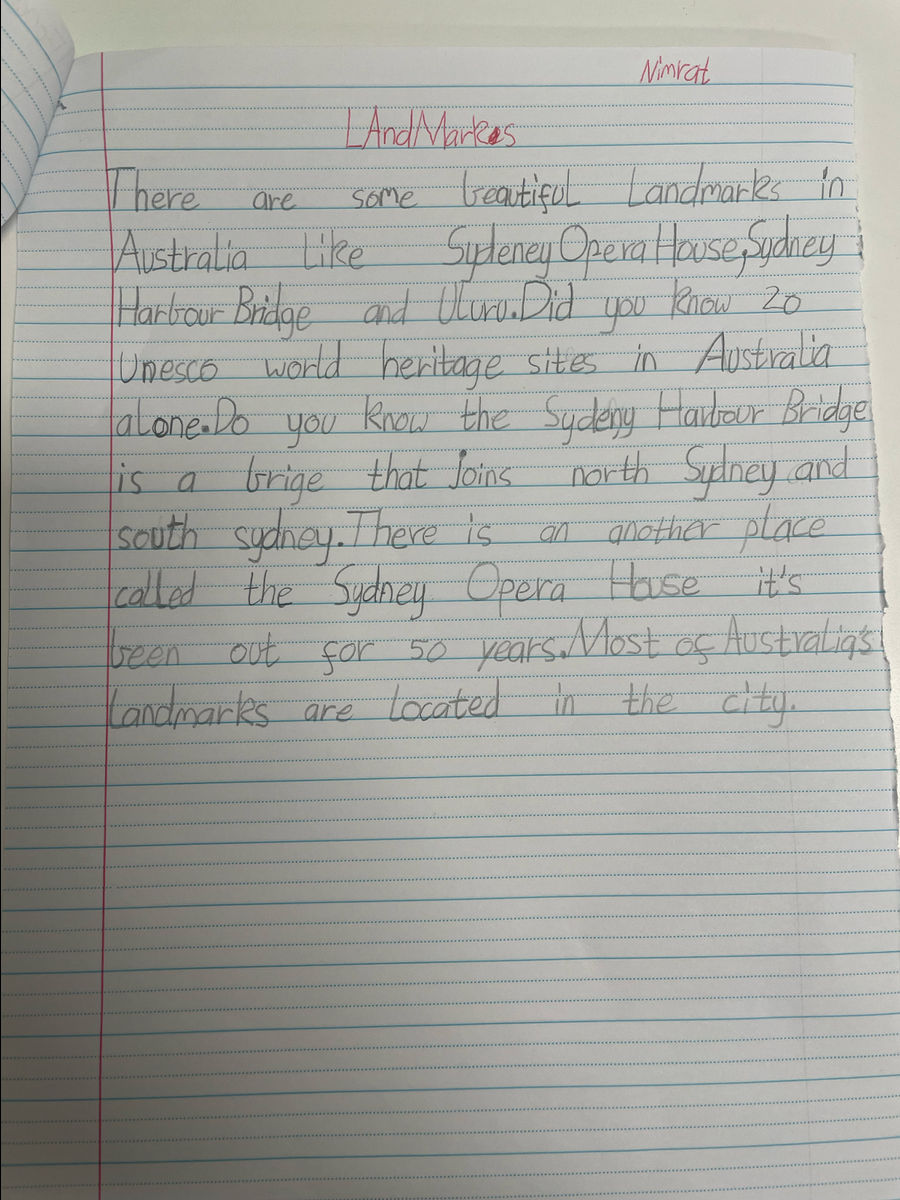 Nimrat
LAndMarks
There are some beautiful Landmarks in
Australia Like Sydeney Opera House,Sydney
Harbour Bridge and Uluru.Did you know 20
Unesco world heritage sites in Australia
alone.Do you know the Sydeny Harbour Bridge
is a brige that Joins north Sydney and
south sydney.There is an another place
called the Sydney Opera House it's
been out for 50 years.Most of Australia's
Landmarks are Located in the city.